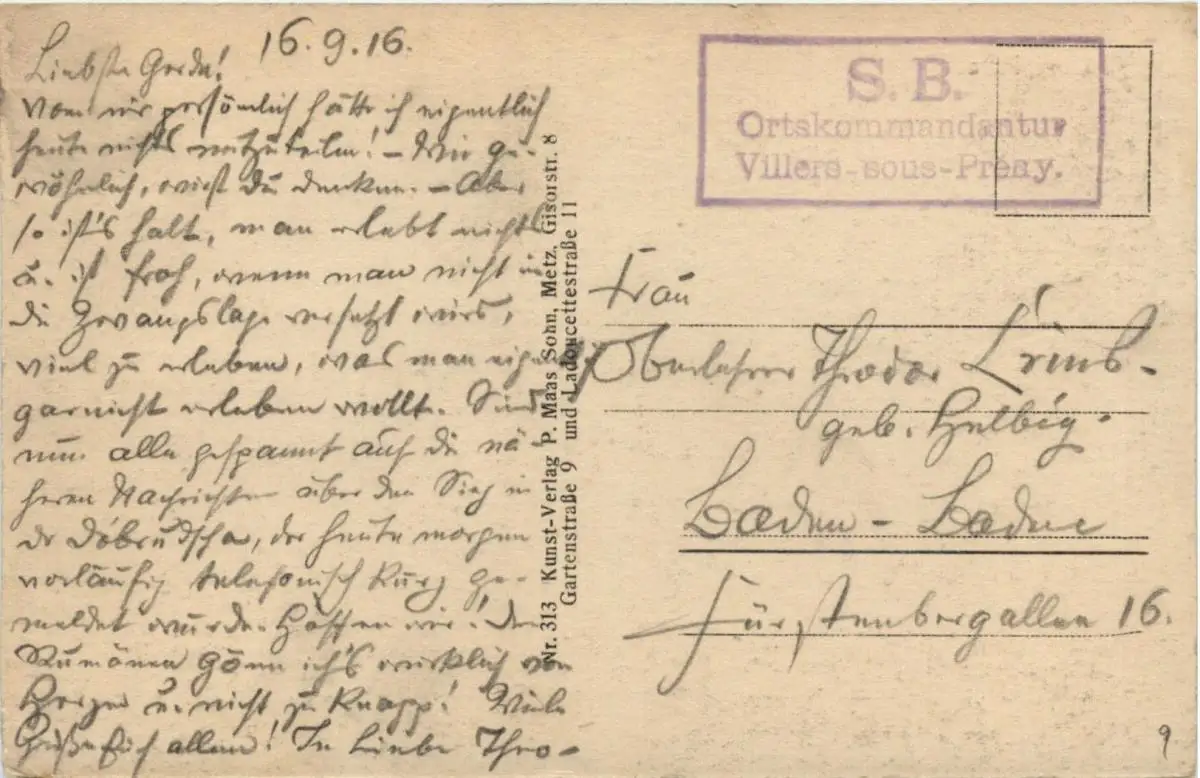 16.9.16.
Liebste Gerda!
Von mir persönlich hätte ich eigentlich
heute nichts mitzuteilen! - Wie ge-
wöhnlich, wirst du denken. - Aber
so ist's halt, man erlebt nichts
u. ist froh, wenn man nicht in
die Zwangslage versetzt wird,
viel zu erleben, was man eigentlich
garnicht erleben wollte. Sind
nun alle gespannt auf die nä-
heren Nachrichten über den Sieg in
der Dobrudscha, der heute morgen
vorläufig telefonisch kurz ge-
meldet wurde. Hoffen wir! Den
Rumänen gönn ich's wirklich von
Herzen u. nicht zu knapp! Viele
Grüße Euch allen! In Liebe Theo-
Nr. 313 Kunst-Verlag P. Maas Sohn, Metz, Gisorstr. 8
Gartenstraße 9 und Ladoucettestraße 11
S. B.
Ortskommandantur
Villers-sous-Prény.
Frau
Oberlehrer Theodor
geb. Helbig.
Baden-Baden
Fürstenbergallee 16.
9